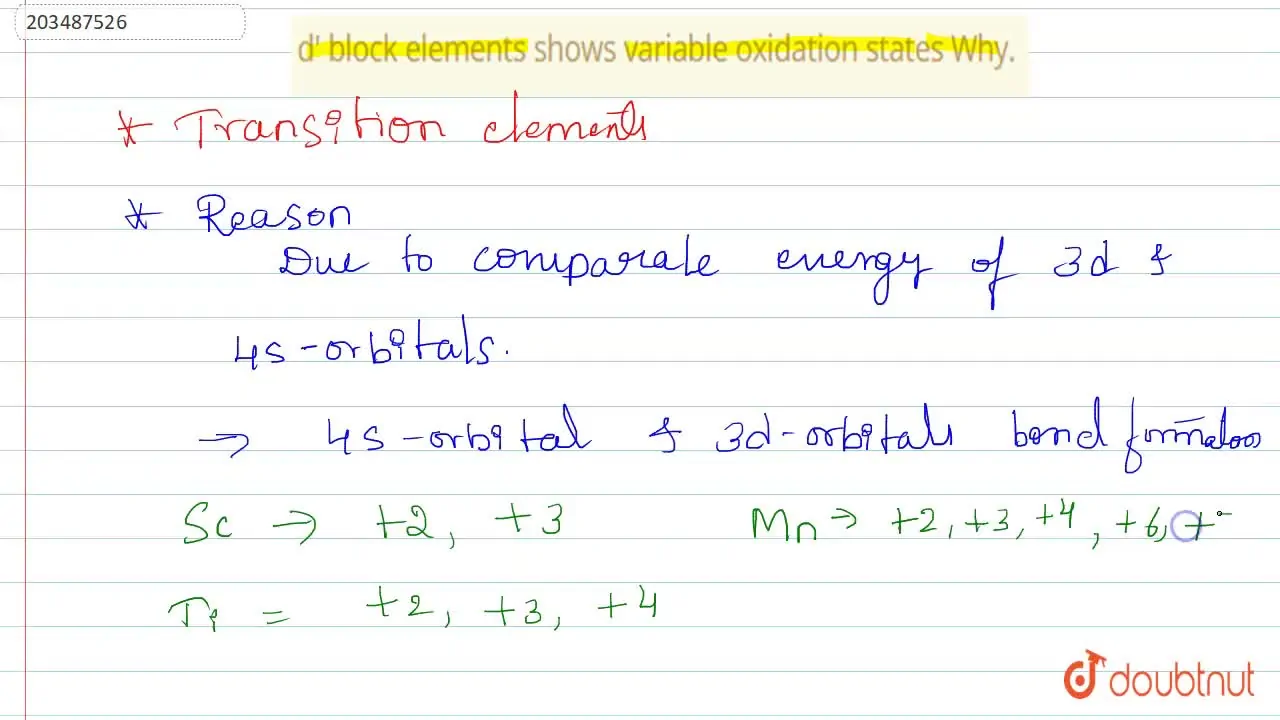 203487526
d' block elements shows variable oxidation states Why.
* Transition elements
* Reason
Due to comparale energy of 3d &
4s-orbitals.
→ 4s-orbital & 3d-orbitals bond
Sc → +2, +3 Mn → +2, +3, +4, +6, +
Ti = +2, +3, +4
doubtnut